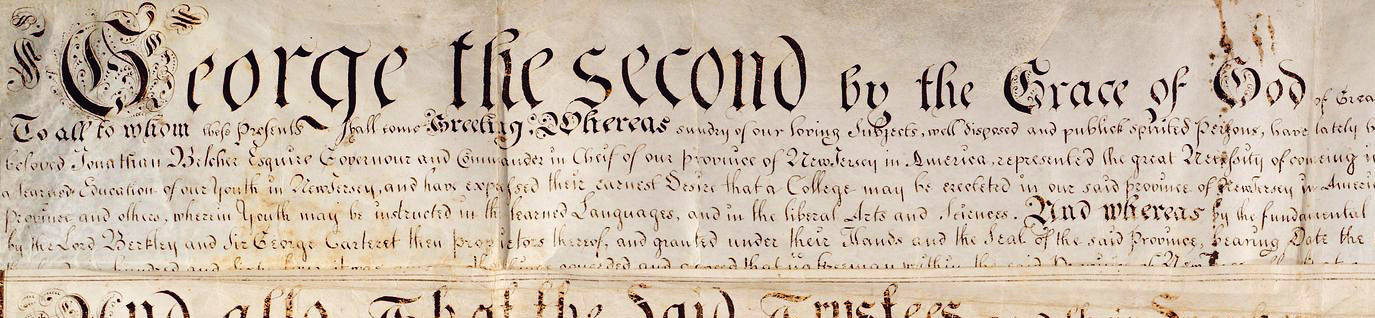 George the second by the Grace of God of Grea
To all to whom these Presents shall come Greeting: Whereas sundry of our loving Subjects, well disposed and publick spirited Persons, have lately b
beloved Jonathan Belcher Esquire Governour and Commander in Cheif of our Province of New Jersey in America, represented the great Necessity of coming i
a learned Education of our Youth in New Jersey, and have expressed their earnest Desire that a College may be erected in our said province of New Jersey in Ameri
Province and others, wherein Youth may be instructed in the learned Languages, and in the liberal Arts and Sciences. And whereas by the fundamental
by the Lord Berkley and Sir George Carteret then Proprietors thereof, and granted under their Hands and the Seal of the said Province, bearing Date the
hundred and conceded and agreed that no freeman within the said Province of New
And also That the Said Trustees and their